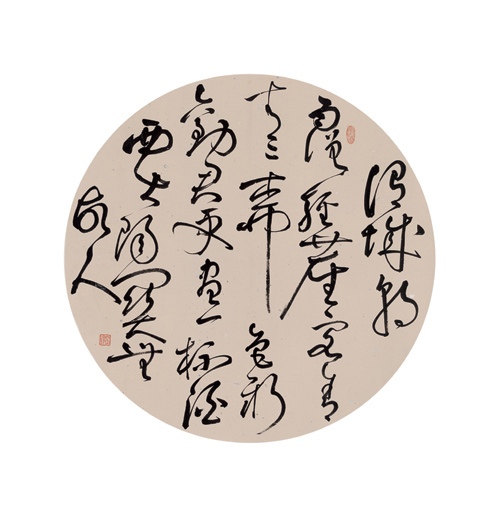 渭城朝
雨浥輕塵客舍
青〻柳色新
勸君更盡一杯酒
西出陽關無
故人